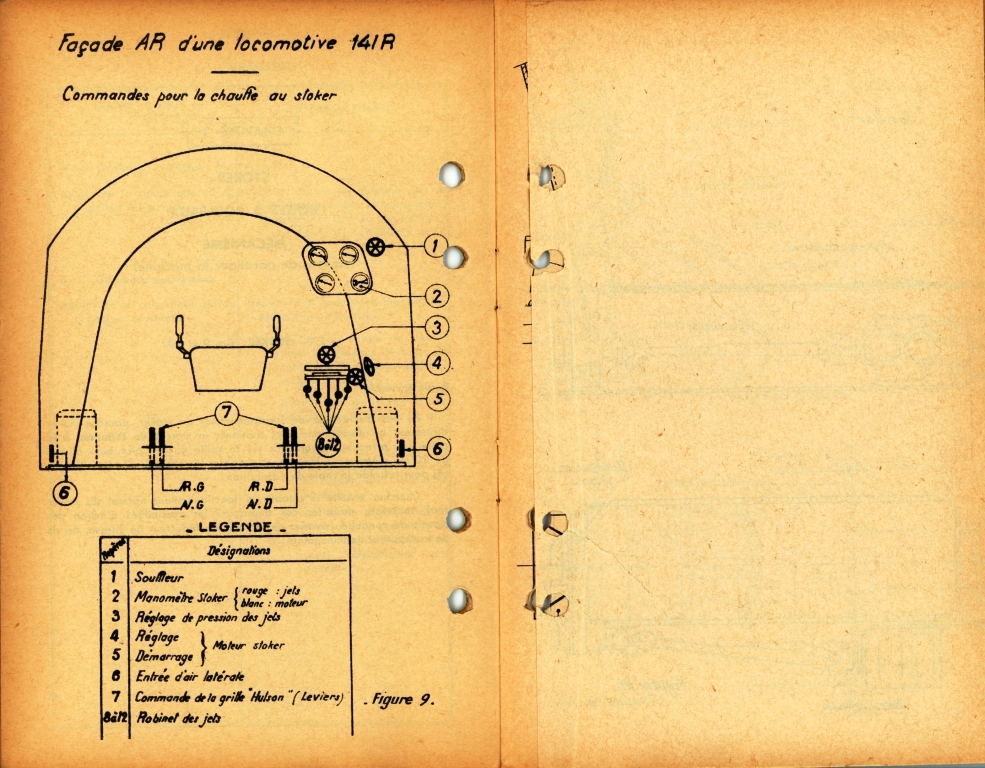 Façade AR d'une locomotive 141R
Commandes pour la chauffe au stoker
1
2
3
4
5
7
8à12
6
6
AR.G
AR.D
AV.G
AV.D
LEGENDE
Repères Désignations
1 Souffleur
2 Manomètre Stoker { rouge : jets
blanc : moteur
3 Réglage de pression des jets
4 Réglage
} Moteur stoker
5 Démarrage
6 Entrée d'air latérale
7 Commande de la grille "Hulson" (Leviers)
8à12 Robinet des jets
- Figure 9.